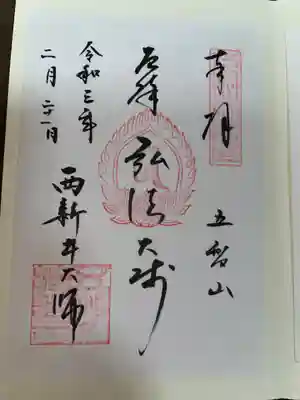 奉拝
五智山
厄除 弘法大師
令和三年
二月二十一日
西新井大師